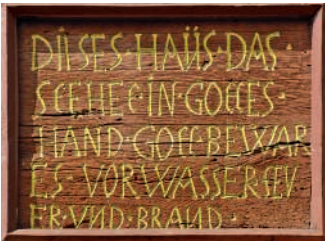 DIESES·HAUS·DAS·
STEHE EIN GOTTES·
HAND·GOTT·BEWAR
ES·VOR WASSER·FEV
ER·VND·BRAND·